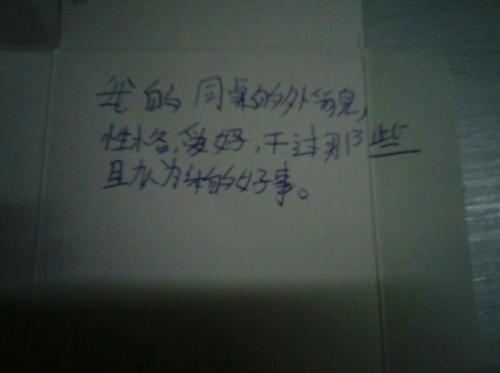 我的同桌的外貌,
性格,爱好,干过那些
且认为的好事。